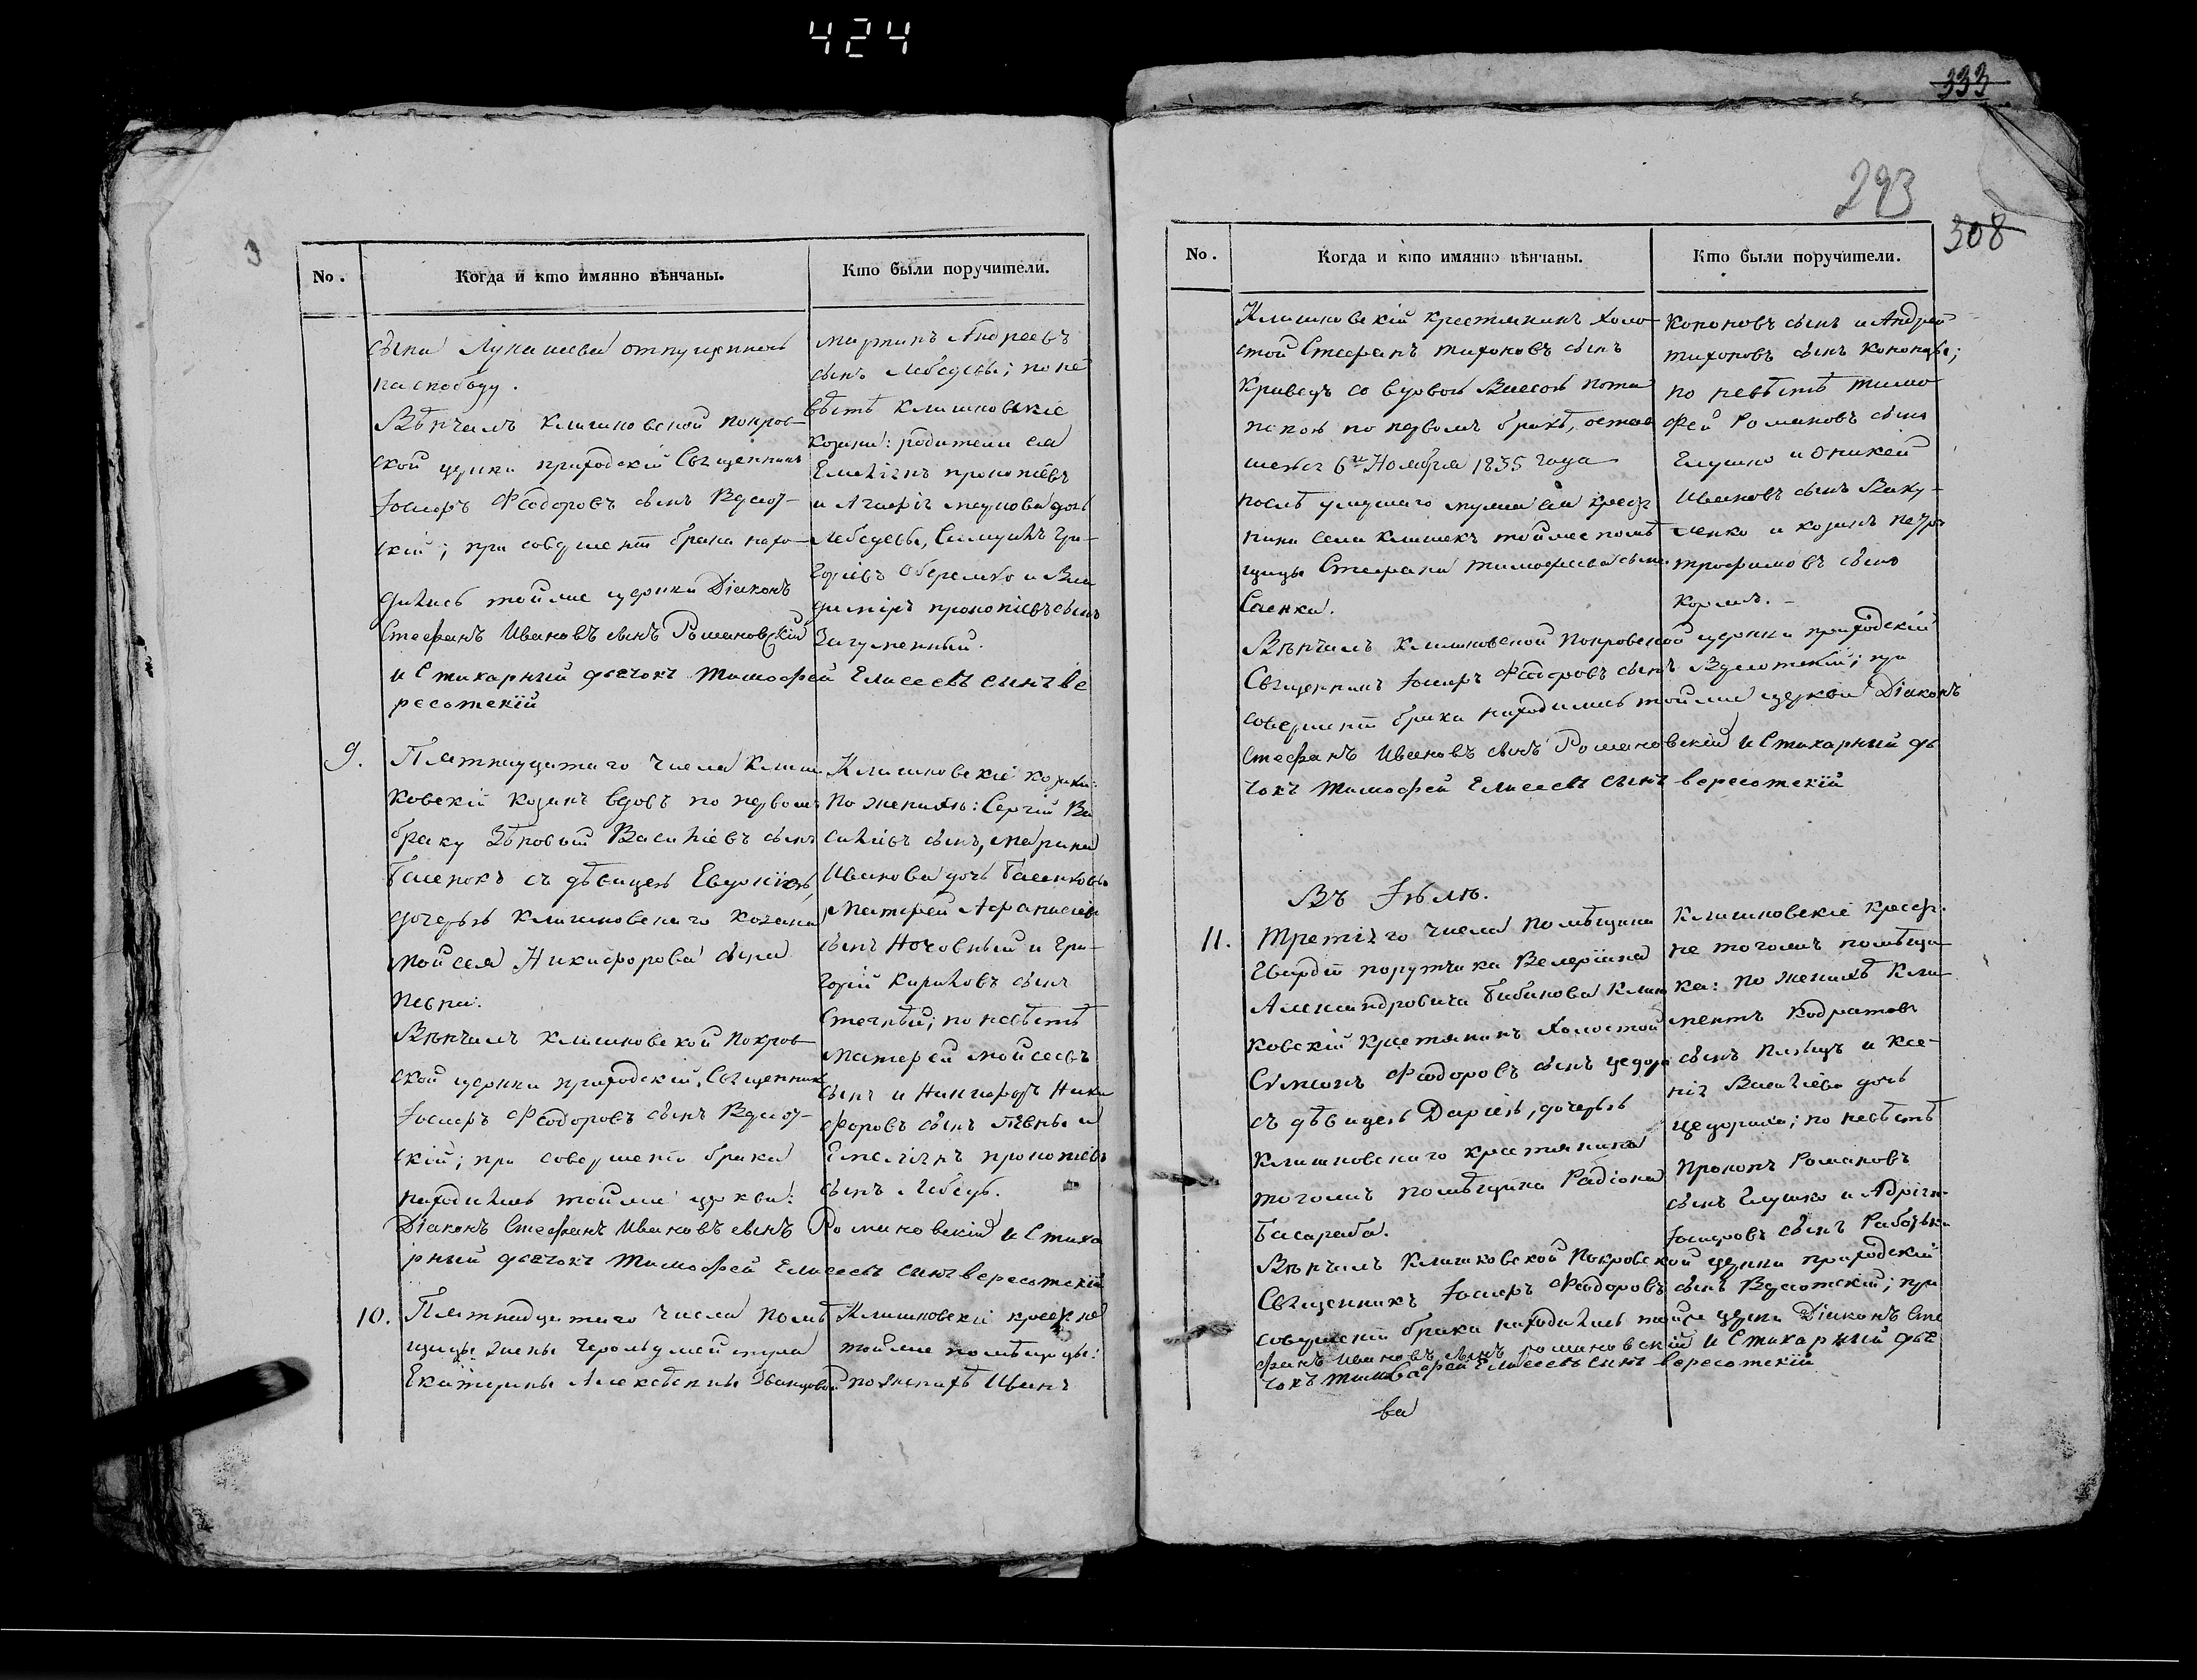 424
333
293
308
3
No.
Когда и кто имянно вѣнчаны.
Кто были поручители.
сына Лукашева отпущенною
на свободу.
Вѣнчалъ Клишковской Покров-
ской церкви приходскій Священникъ
Іосифъ Ѳеодоровъ сынъ
скій; при совершеніи брака нахо-
дились тойже церкви Діаконъ
Стефанъ Ивановъ сынъ Романовскій
и Стихарный дьячокъ Тимофей Елисеевъ сынъ Ве
ресотскій
Мартинъ Андреевъ
сынъ Лебедевы; по не
вѣстѣ Клишковскіе
козаки: родители ея
Емеліянъ Прокопіевъ
и Агафія дочь
Лебедевы, Самуилъ Гри-
горіевъ Оберемко и Вла
диміръ Прокопіевъ сынъ
Загуменный.
9.
Пятнадцатаго числа Клиш
ковскій козакъ вдовъ по первому
браку Зѣновій Василіевъ сынъ
Башенокъ съ дѣвицею Евдокіею,
дочерью Клишковскаго козака
Мойсея Никифорова сына
Певня.
Вѣнчалъ Клишковской Покров
ской церкви приходскій Священникъ
Іосифъ Ѳеодоровъ сынъ
скій; при совершеніи брака
находились тойже церкви:
Діаконъ Стефанъ Ивановъ сынъ Романовскій и Стиха
рный дьячокъ Тимофей Елисеевъ сынъ Вересотскій
Клишковскіе козаки:
по женихѣ: Сергій Ва
силіевъ сынъ, Марина
Иванова дочь Башенковы
Матфей Афанасіевъ
сынъ Ночовный и Гри-
горій Кириловъ сынъ
по невѣстѣ
Матфей Мойсеевъ
сынъ и Никифоръ Ники
форовъ сынъ Певны и
Емеліянъ Прокопіевъ
сынъ Лебедь.
10.
Пятнадцатаго числа помѣ
щицы жены
Екатерины Алексѣевны
Клишковскіе
тойже помѣщицы:
по женихѣ Иванъ
No.
Когда и кто имянно вѣнчаны.
Кто были поручители.
Клишковскій крестянинъ холо
стой Стефанъ Тихоновъ сынъ
Кривецъ со вдовою Вассою Пота
повою по первомъ бракѣ, остав
шеюсь 6го Ноября 1835 года
послѣ умершаго мужа ея кресть
янина села Клишекъ тойже помѣ
щицы Стефана Тимофеева сына
Саенка.
Вѣнчалъ Клишковской Покровской церкви приходскій
Священникъ Іосифъ Ѳеодоровъ сынъ при
совершеніи брака находились тойже церкви Діаконъ
Стефанъ Ивановъ сынъ Романовскій и Стихарный дья
чокъ Тимофей Елисеевъ сынъ Вересотскій
Кононовъ сынъ и Андрей
Тихоновъ сынъ
по невѣстѣ Тимо
фей Романовъ сынъ
Глушко и Оникей
Ивановъ сынъВаку-
ленко и козакъ Петръ
Трофимовъ сынъ
Въ Іюлѣ.
11.
Третяго числа помѣщика
Гвардіи порутчика Велеріяна
Александровича Бибикова Клиш
ковскій крестянинъ холостой
Сѵмеонъ Ѳеодоровъ сынъ
съ дѣвицею Даріею, дочерью
Клишковскаго крестянина
тогожъ помѣщика Радіона
Басараба.
Вѣнчалъ Клишковской Покровской церкви приходскій
Священникъ Іосифъ Ѳеодоровъ сынъ при
совершеніи брака находились тойже церкви Діаконъ Сте
фанъ Ивановъ сынъ Романовскій и Стихарный дья
чокъ Тимофей Елисеевъ сынъ Вересотскій
ва
Клишковскіе
не тогожъ помѣщи
ка: по женихѣ Кли
ментъ Кодратовъ
сынъ и Ксе-
нія Василіева дочь
по невѣстѣ
Прокопъ Романовъ
сынъ Глушко и Адріянъ
Іосифовъ сынъ